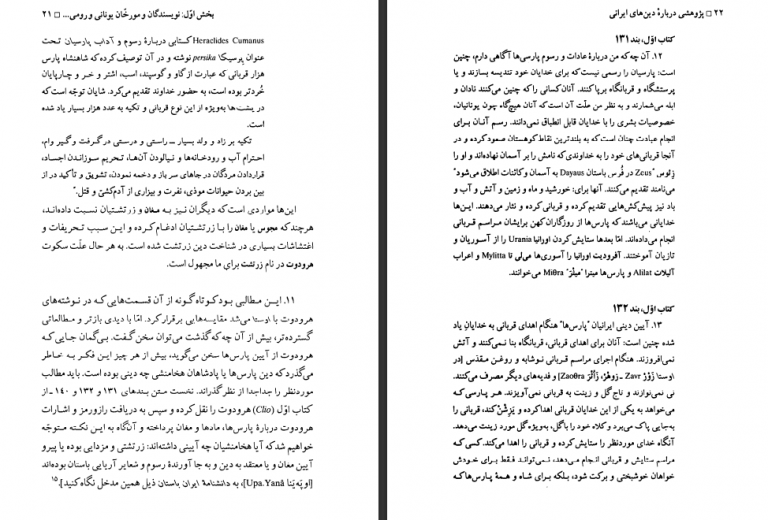 ۲۲ □ پژوهشی دربارهٔ دین‌های ایرانی
کتاب اوّل، بند ۱۳۱
۱۲. آن چه که من دربارهٔ عادات و رسوم پارسی‌ها آگاهی دارم، چنین
است: پارسیان را رسمی نیست که برای خدایان خود تندیسه بسازند و یا
پرستشگاه و قربانگاه برپا کنند. آنان‌کسانی را که چنین می‌کنند نادان و
ابله می‌شمارند و به نظر من علّت آن است که آنان هیچ‌گاه چون یونانیان،
خصوصیات بشری را با خدایان قابل انطباق نمی‌دانند. رسم آنـان بـرای
انجام عبادت چنان است که به بلندترین نقاط کوهستان صعود کرده و در
آنجا قربانی‌های خود را به خداوندی که نامش را بر آسمان نهاده‌اند و او را
زِئوس "Zeus در فُرس باستان Dayaus به آسمان و کائنات اطلاق می‌شود"
می‌نامند تقدیم می‌کنند. آنها برای: خورشید و ماه و زمین و آتش و آب و
باد نیز پیش‌کش‌هایی تقدیم کرده و قربانی کرده و نثار می‌دهند. این‌ها
خدایانی می‌باشند که پارس‌ها از روزگاران کهن برایشان مـراسـم قـربانی
انجام می‌داده‌اند. امّا بعدها ستایش کردن اورانیا Urania را از آسوریان و
تازیان آموختند. آفرودیت اورانیا را آسوری‌ها می‌لی تا Mylitta و اعراب
آلیلات Alilat و پارس‌ها میترا "میثْرَ" Miθra می‌خوانند.
کتاب اوّل، بند ۱۳۲
۱۳. آیین دینی ایرانیان "پارس‌ها" هنگام اهدای قربانی به خدایانِ یاد
شده چنین است: آنان برای اهدای قربانی، قربانگاه بنا نمی‌کنند و آتش
نمی‌افروزند. هنگام اجرای مراسم قـربانی نـوشابه و روغـن مـقدس [در
اوستا زَوْرْ Zavr ـ زوهْرْ، زَاُثْرَ Zaoθra] و فدیه‌های دیگر مصرف می‌کنند.
نی نمی‌نوازند و تاج‌گل و زینت به قربانی نمی‌آویزند. هـر پـارسی کـه
می‌خواهد به یکی از این خدایان قربانی اهدا کرده و یَزِشْن کند، قربانی را
به‌جایی پاک می‌برد و کلاه خود را باگل، به‌ویژه گل مورد زینت می‌دهد.
آنگاه خدای موردنظر را ستایش کرده و قربانی را اهدا می‌کند. کسی کـه
مراسم ستایش و قربانی انجام می‌دهد، نمی‌تواند فقط برای خـودش
خواهان خوشبختی و برکت شود، بلکه برای شاه و همهٔ پارس‌ها کـه
بخش اوّل: نویسندگان و مورخّان یونانی و رومی... □ ۲۱
Heraclides Cumanus کتابی دربارهٔ رسوم و آداب پارسیان تحت
عنوان پرسیکا persika نوشته و در آن توصیف کرده که شاهنشاه پارس
هزار قربانی که عبارت از گاو و گوسپند، اسب، اشتر و خـر و چـارپایان
خُردتر بوده است، به حضور خداوند تقدیم می‌کرد. شایان توجّه است که
در یشت‌ها به‌ویژه از این نوع قربانی و تکیه به عدد هزار بسیار یاد شده
است.
تکیه بر زاد و ولد بسیار ـ راستی و درستی در گرفت و گیر وام،
احترام آب و رودخانه‌ها و نیالودن آن‌ها، تحریم سوزاندن اجساد،
قراردادن مردگان در جاهای سر باز و دخمه نمودن، تشویق و تأکید در از
بین بردن حیوانات موذی، نفرت و بیزاری از آدم‌کشی و قتل."
این‌ها مواردی است که دیگران نیـز بـه مغان و زرتشتیان نسبت داده‌انـد،
هرچند که مجوس یا مغان را با زرتشتیان ادغـام کـرده و ایـن سـبب تـحریفات و
اغتشاشات بسیاری در شناخت دین زرتشت شده است. به هر حال علّت سکوت
هرودوت در نام زرتشت برای ما مجهول است.
۱۱. ایـن مطالبی بود کوتاه‌گونه از آن قسمت‌هایی کـه در نوشته‌های
هرودوت با اوستا می‌شد مقایسه‌هایی برقرار کرد. امّا با دیدی بازتر و مطالعاتی
گسترده‌تر، بیش از آن چه که گذشت می‌توان سخن گفت. بی‌گمان جـایی کـه
هرودوت از آیین پارس‌ها سخن می‌گوید، بیش از هر چیز این فکـر بـه خـاطر
می‌گذرد که دین پارس‌ها یا پادشاهان هخامنشی چه دینی بوده است. باید مطالب
موردنظر را جداجدا از نظر گذراند. نخست متن بندهای ۱۳۱ و ۱۳۲ و ۱۴۰ ـ از
کتاب اوّل (Clio) هرودوت را نقل کرده و سپس به دریافت رازورمز و اشارات
هرودوت دربارهٔ پارس‌ها، مادها و مغان پرداخته و آنگاه به این نکـته مـتوجّه
خواهیم شد که آیا هخامنشیان چه آیینی داشته‌اند: زرتشتی و مزدایی بوده یا پیرو
آیین مغان و یا معتقد به دین و به جا آورندهٔ رسوم و شعایر آریایی باستان بوده‌اند
[اوپَه‌یَنا Upa.Yanâ]، به دانشنامهٔ ایران باستان ذیل همین مدخل نگاه کنید].۱۵